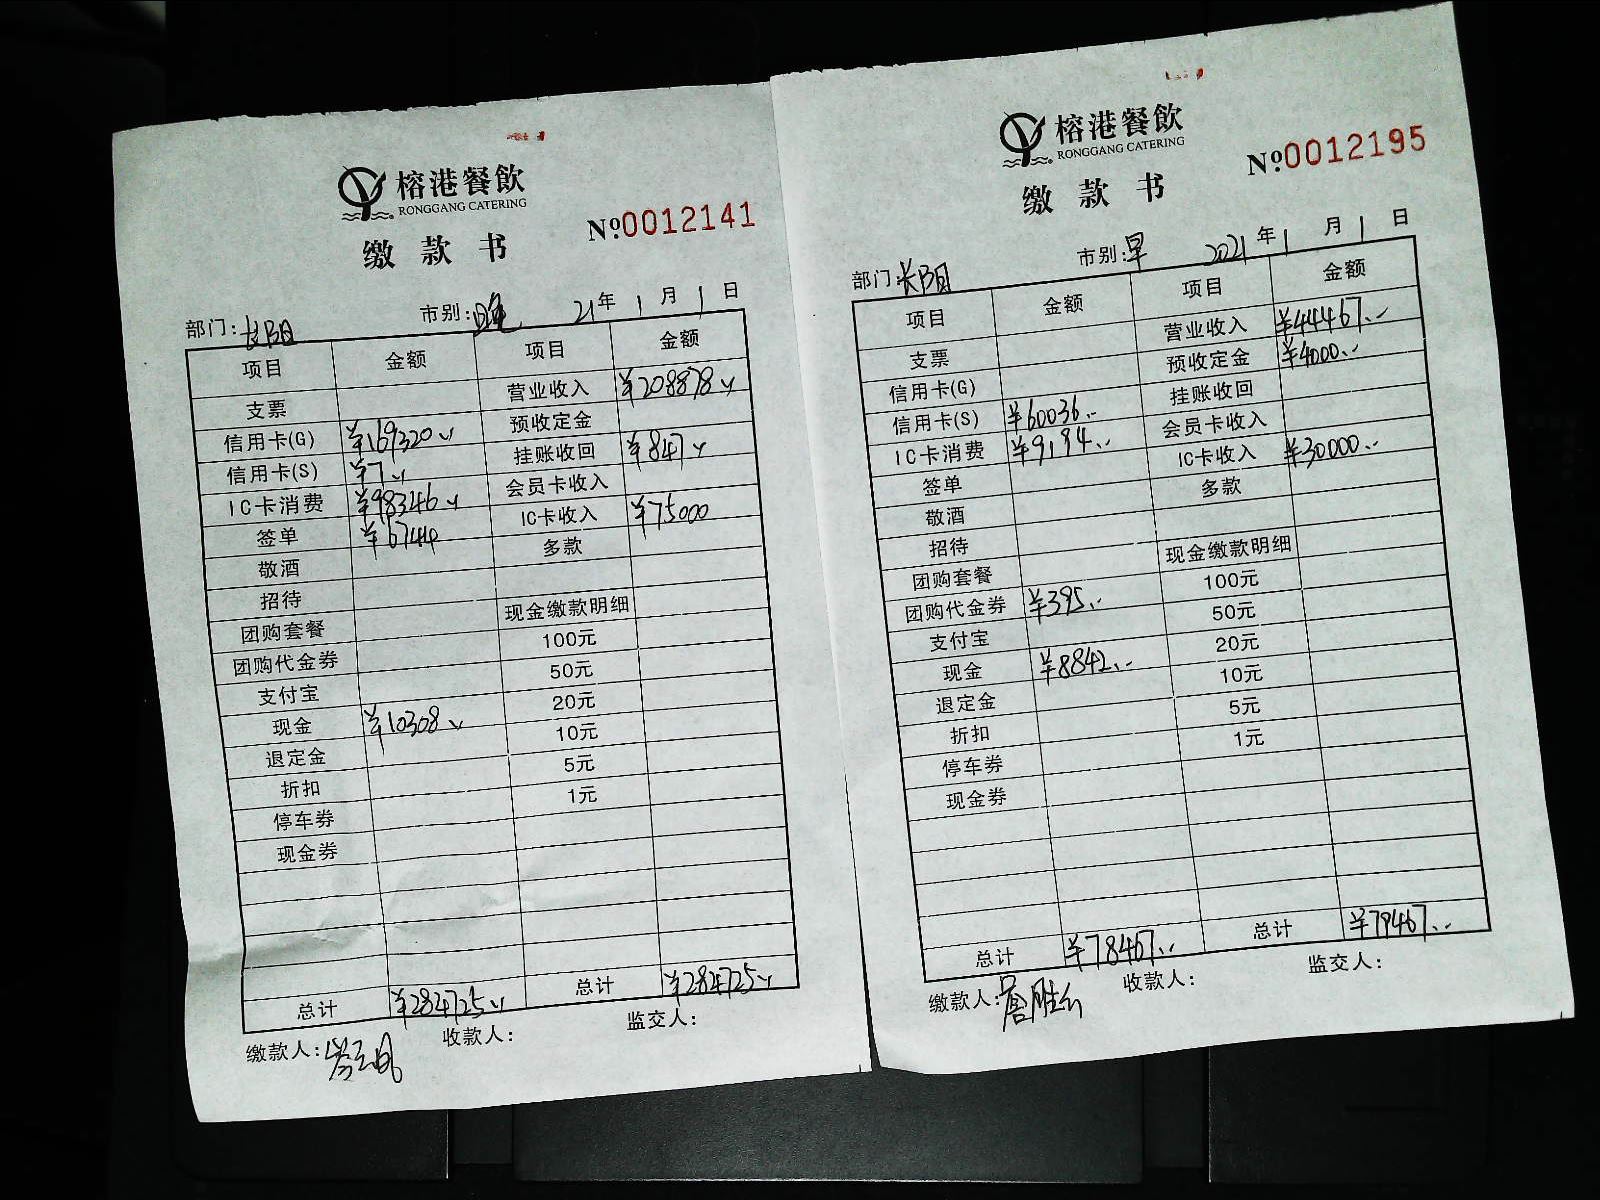 榕港餐飲
RONGGANG CATERING
缴款书
Nº0012141
部门:长阳 市别:晚 21年1月1日
项目 金额 项目 金额
支票 营业收入 ¥208878
信用卡(G) ¥169320 预收定金
信用卡(S) ¥7 挂账收回 ¥847
IC卡消费 ¥98346 会员卡收入
签单 ¥6744 IC卡收入 ¥75000
敬酒 多款
招待
团购套餐 现金缴款明细
团购代金券 100元
支付宝 50元
现金 ¥10308 20元
退定金 10元
折扣 5元
停车券 1元
现金券
总计 ¥284725 总计 ¥284725
缴款人: 收款人: 监交人:
榕港餐飲
RONGGANG CATERING
缴款书
Nº0012195
部门:长阳 市别:早 2021年1月1日
项目 金额 项目 金额
支票 营业收入 ¥44467
信用卡(G) 预收定金 ¥4000
信用卡(S) ¥60036 挂账收回
IC卡消费 ¥9194 会员卡收入
签单 IC卡收入 ¥30000
敬酒 多款
招待
团购套餐 现金缴款明细
团购代金券 ¥395 100元
支付宝 50元
现金 ¥8842 20元
退定金 10元
折扣 5元
停车券 1元
现金券
总计 ¥78467 总计 ¥78467
缴款人: 收款人: 监交人: